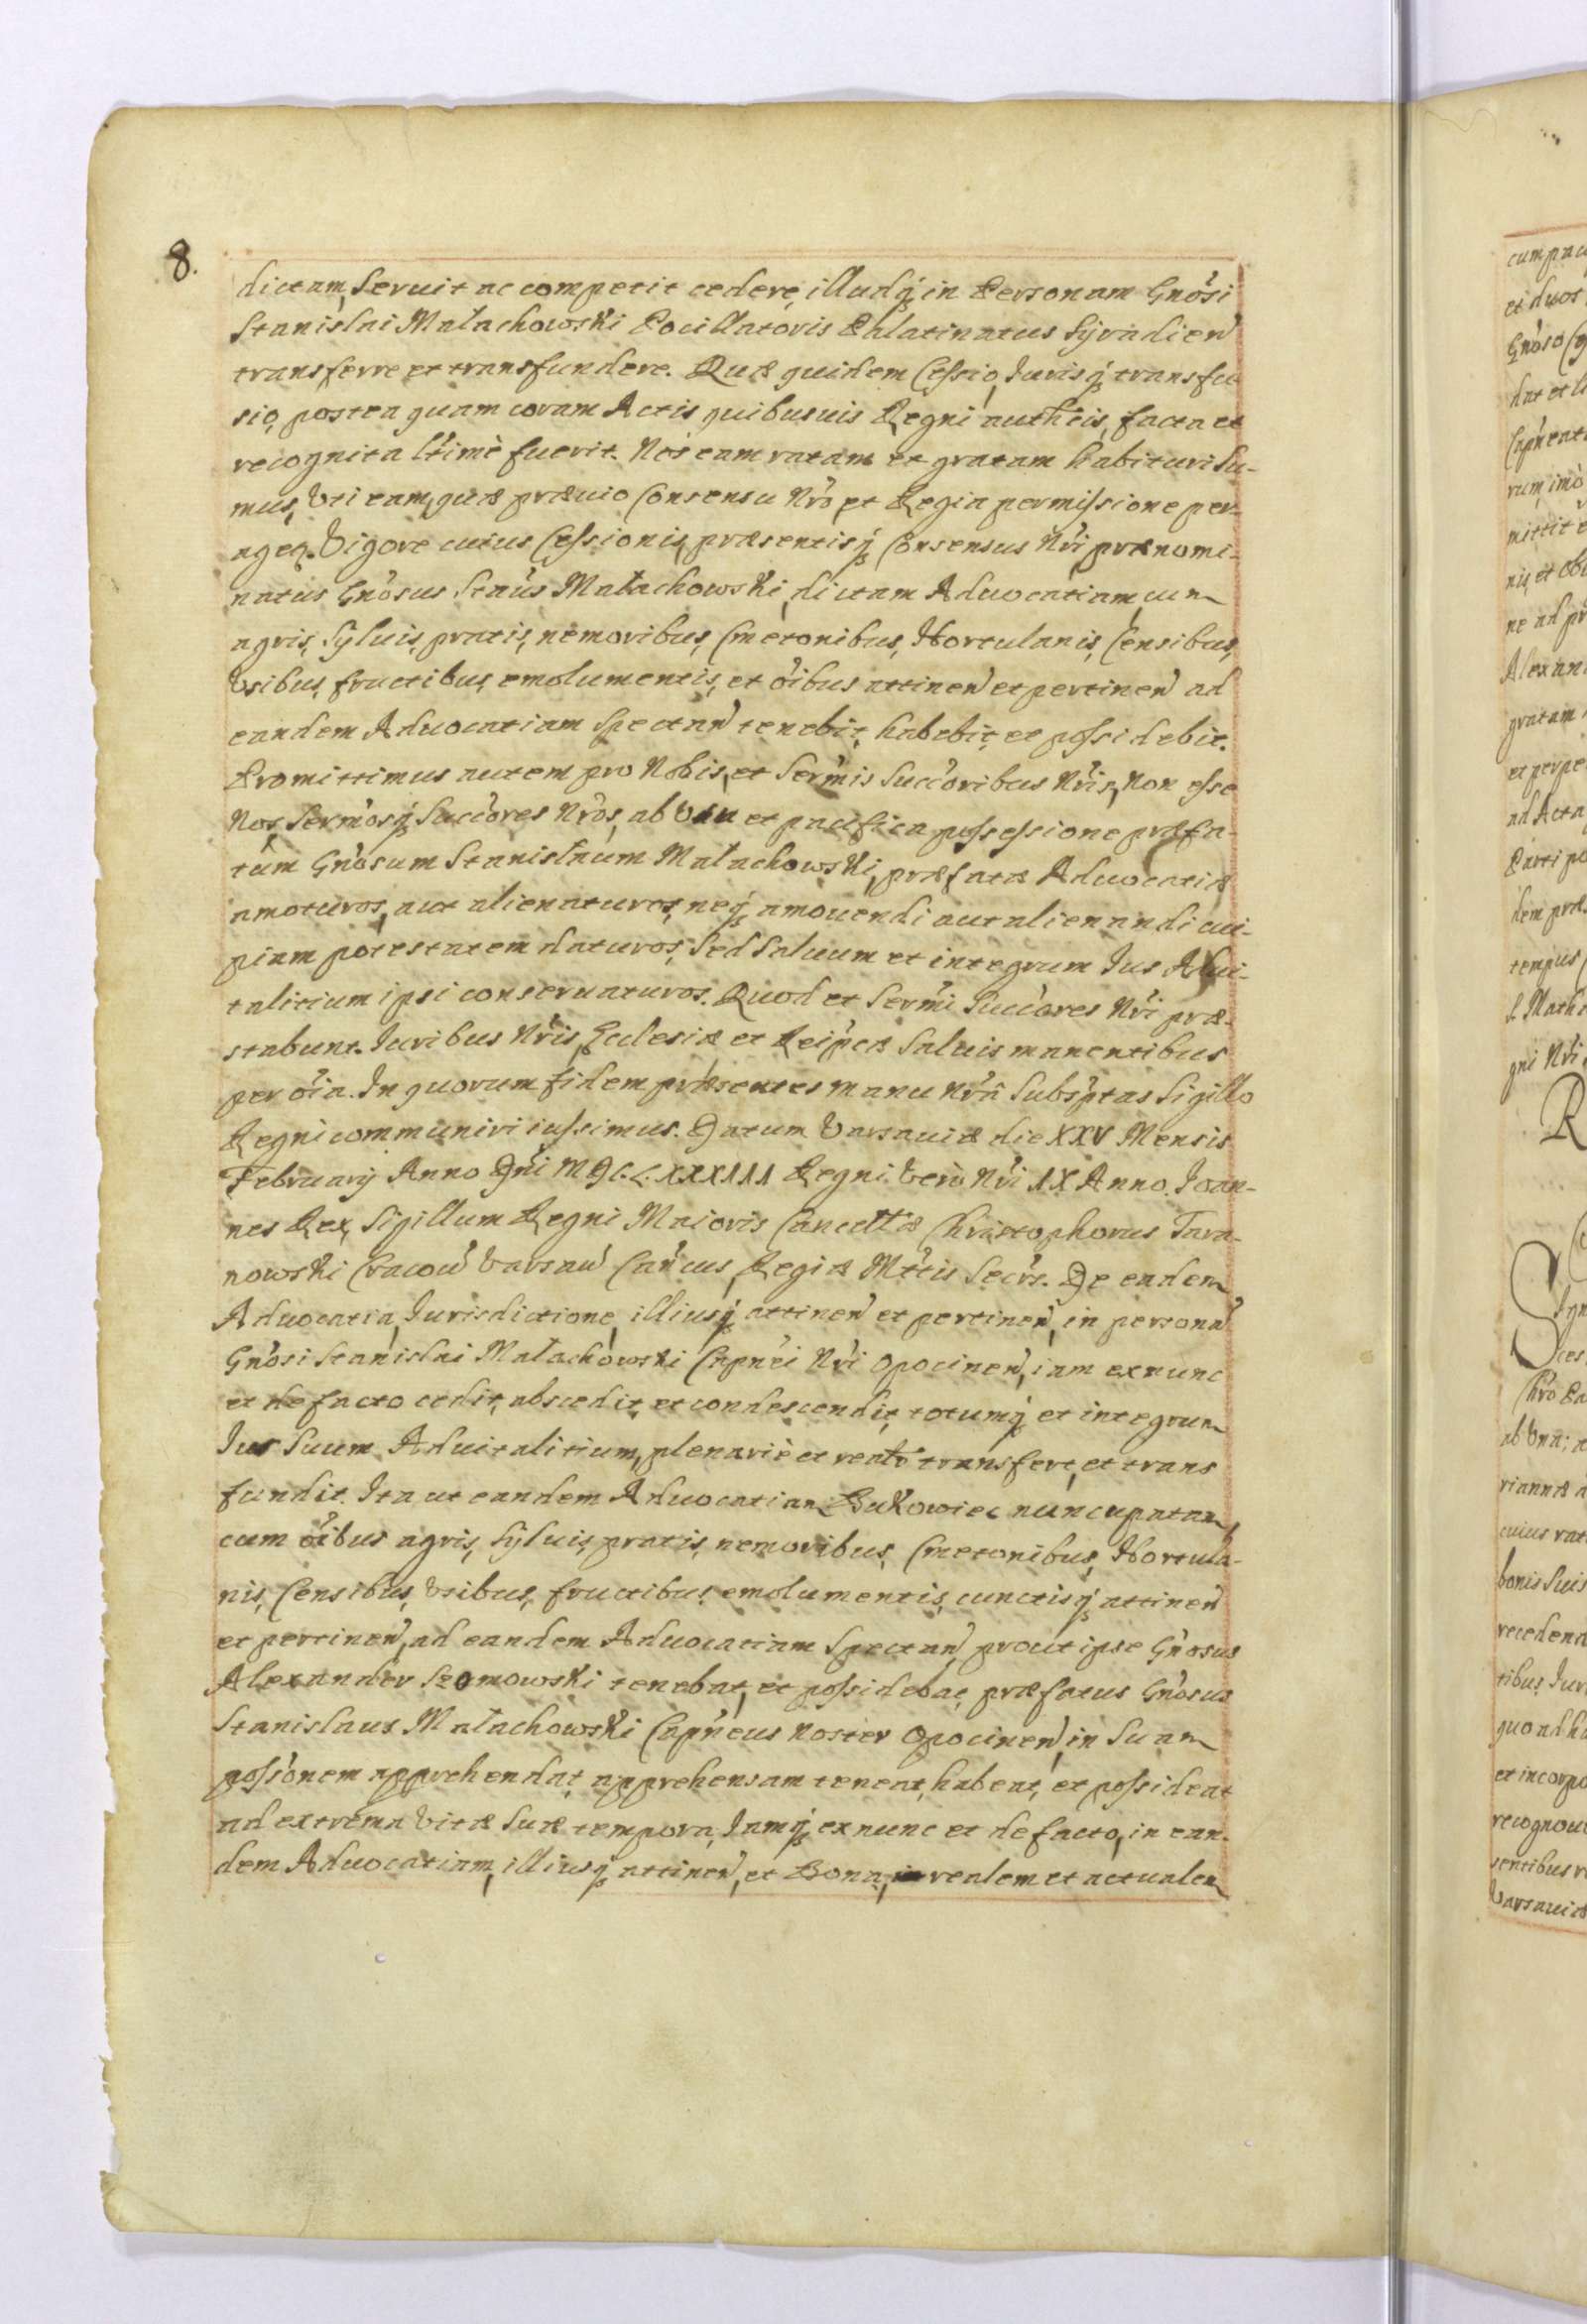 8.
dictam, Seruit ac competit cedere, illudq; in Personam Gnosi
Stanislai Małachowski Pocillatoris Palatinatus Syradien
transferre et transfundere. Quæ quidem Cessio, Jurisq; transfu
sio, postea quam coram Actis quibusuis Regni autheis, facta et
recognita ltimè fuerit. Nos eam ratam et gratam habituri Su-
mus, Vti eam, quæ præuio Consensu Nro et Regia permissione per-
ageq. Vigore cuius Cessionis, præsentisq; Consensus Nri prænomi-
natus Gnosus Staus Małachowski, dictam Aduocatiam, cum
agris, Syluis, pratis, nemoribus, Cmetonibus, Hortulanis, Censibus,
Vsibus, fructibus, emolumentis, et oibus attinen et pertinen ad
eandem Aduocatiam Spectan tenebit, habebit, et possidebit.
Promittimus autem pro Nobis, et Sermis Succoribus Nris, Non esse
Nos, Sermosq; Succores Nros, ab Vsu et pacifica possessione præfa-
tum Gnosum Stanislaum Małachowski, præfatæ Aduocatiæ
amoturos, aut alienaturos, neq; amouendi aut alienandi cui-
piam potestatem daturos, Sed Saluum et integrum Jus Adui-
talitium ipsi conseruaturos. Quod et Sermi Succores Nri præ-
stabunt. Juribus Nris, Ecclesiæ et Reipcæ Saluis manentibus
per oia. In quorum fidem præsentes manu Nra Subsptas Sigillo
Regni communiri iussimus. Datum Varsauiæ die XXV Mensis
February Anno Dni MDC.LXXXIII Regni Vero Nri IX Anno. Joan-
nes Rex, Sigillum Regni Maioris Cancellæ Christophorus Tara-
nowski Cracou Varsau Cancus, Regiæ Mttis Secrs. De eadem
Aduocatia, Jurisdictione, illiusq; attinen et pertinen, in personam
Gnosi Stanislai Małachowski Capnei Nri Opocinen, iam exnunc
et defacto cedit, abscedit, et condescendit, totumq; et integrum
Jus Suum Aduitalitium, plenariè et realr transfert, et trans
fundit. Ita ut eandem Aduocatiam Bukowiec nuncupatam,
cum oibus agris, Syluis, pratis, nemoribus, Cmetonibus, Hortula-
nis, Censibus, Vsibus, fructibus, emolumentis, cunctisq; attinen
et pertinen, ad eandem Aduocatiam Spectan, prout ipse Gnosus
Alexander Szomowski tenebat, et possidebat, præfatus Gnosus
Stanislaus Małachowski Capneus Noster Opocinen, in Suam
possonem apprehendat, apprehensam teneat, habeat, et possideat
ad extrema Vitæ Suæ tempora, Jamq; exnunc et defacto, in ean-
dem Aduocatiam, illiusq; attinen, et Bona, in realem et actualem